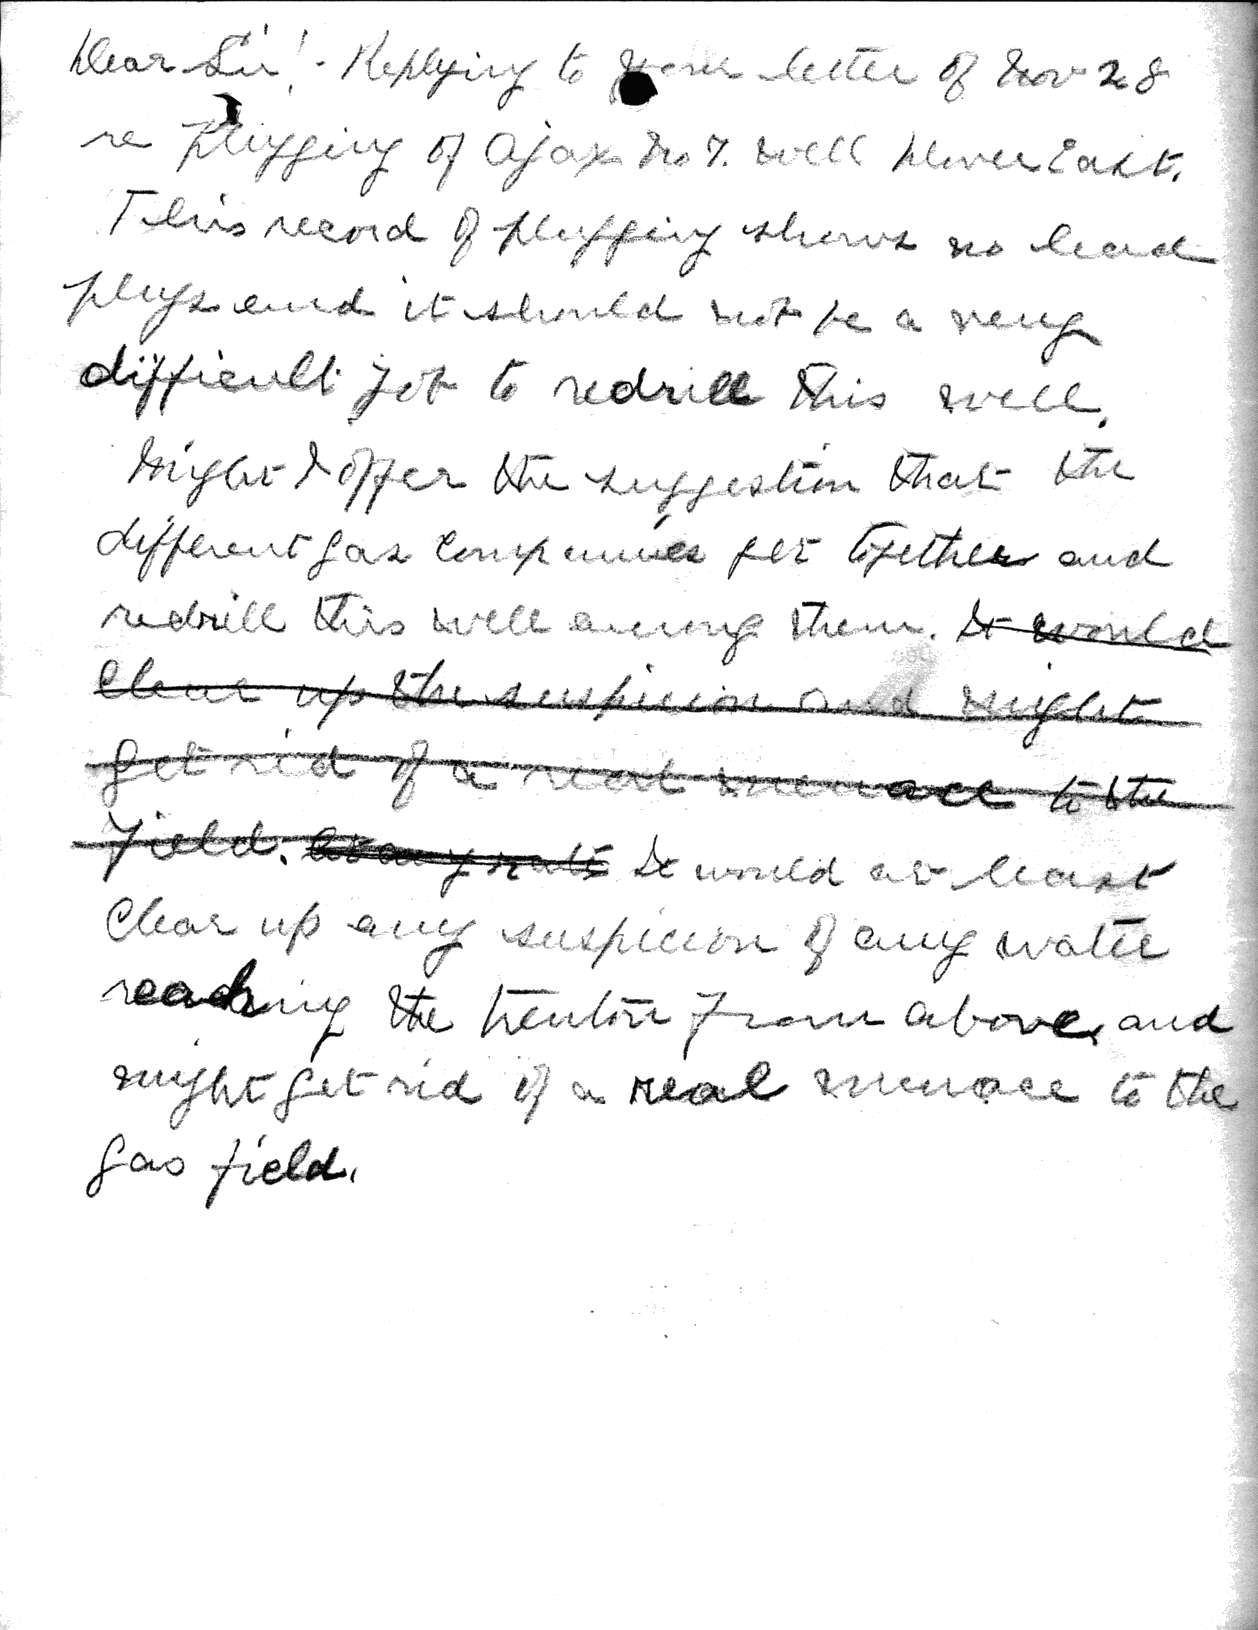 Dear Sir! - Replying to your letter of Nov 28
re plugging of Ajax No 7. well Dover East.
This record of plugging shows no lead
plugs and it should not be a very
difficult job to redrill this well.
Might I offer the suggestion that the
different gas companies get together and
redrill this well among them. It would
clear up the suspicion and might
get rid of a real menace to the
field. At any rate It would at least
Clear up any suspicion of any water
reaching the trenton from above, and
might get rid of a real menace to the
gas field.